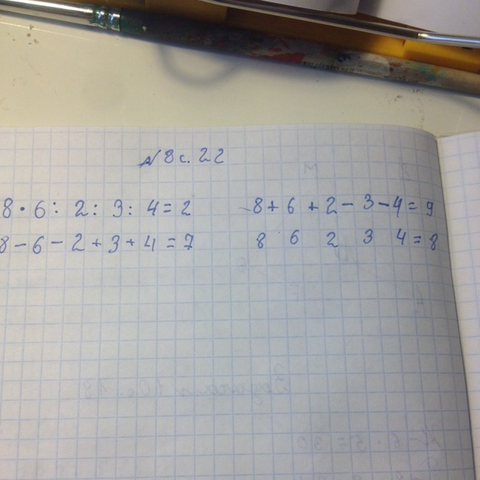 № 8 с. 22
8 · 6 : 2 : 3 : 4 = 2
8 + 6 + 2 - 3 - 4 = 9
8 - 6 - 2 + 3 + 4 = 7
8 6 2 3 4 = 8